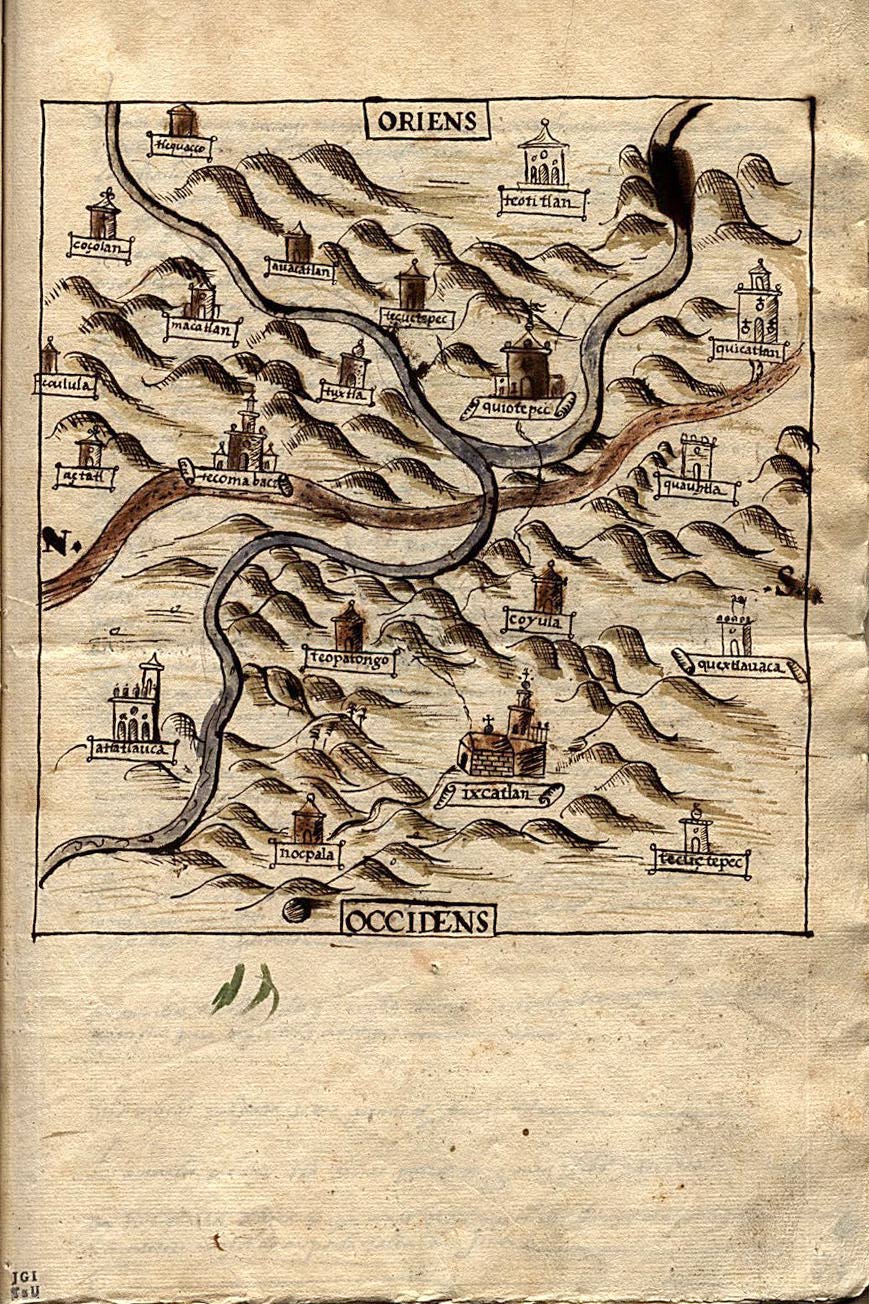 ORIENS
tlequauco
teotitlan
coçolan
auacatlan
tecuctepec
macatlan
quicatlan
coulula
tuxtla
quiotepec
açtatl
tecomabaca
quauhtla
N.
S.
coyula
teopatongo
quextlauaca
atlatlauca
ixcatlan
nocpala
tecuçtepec
OCCIDENS
JGI